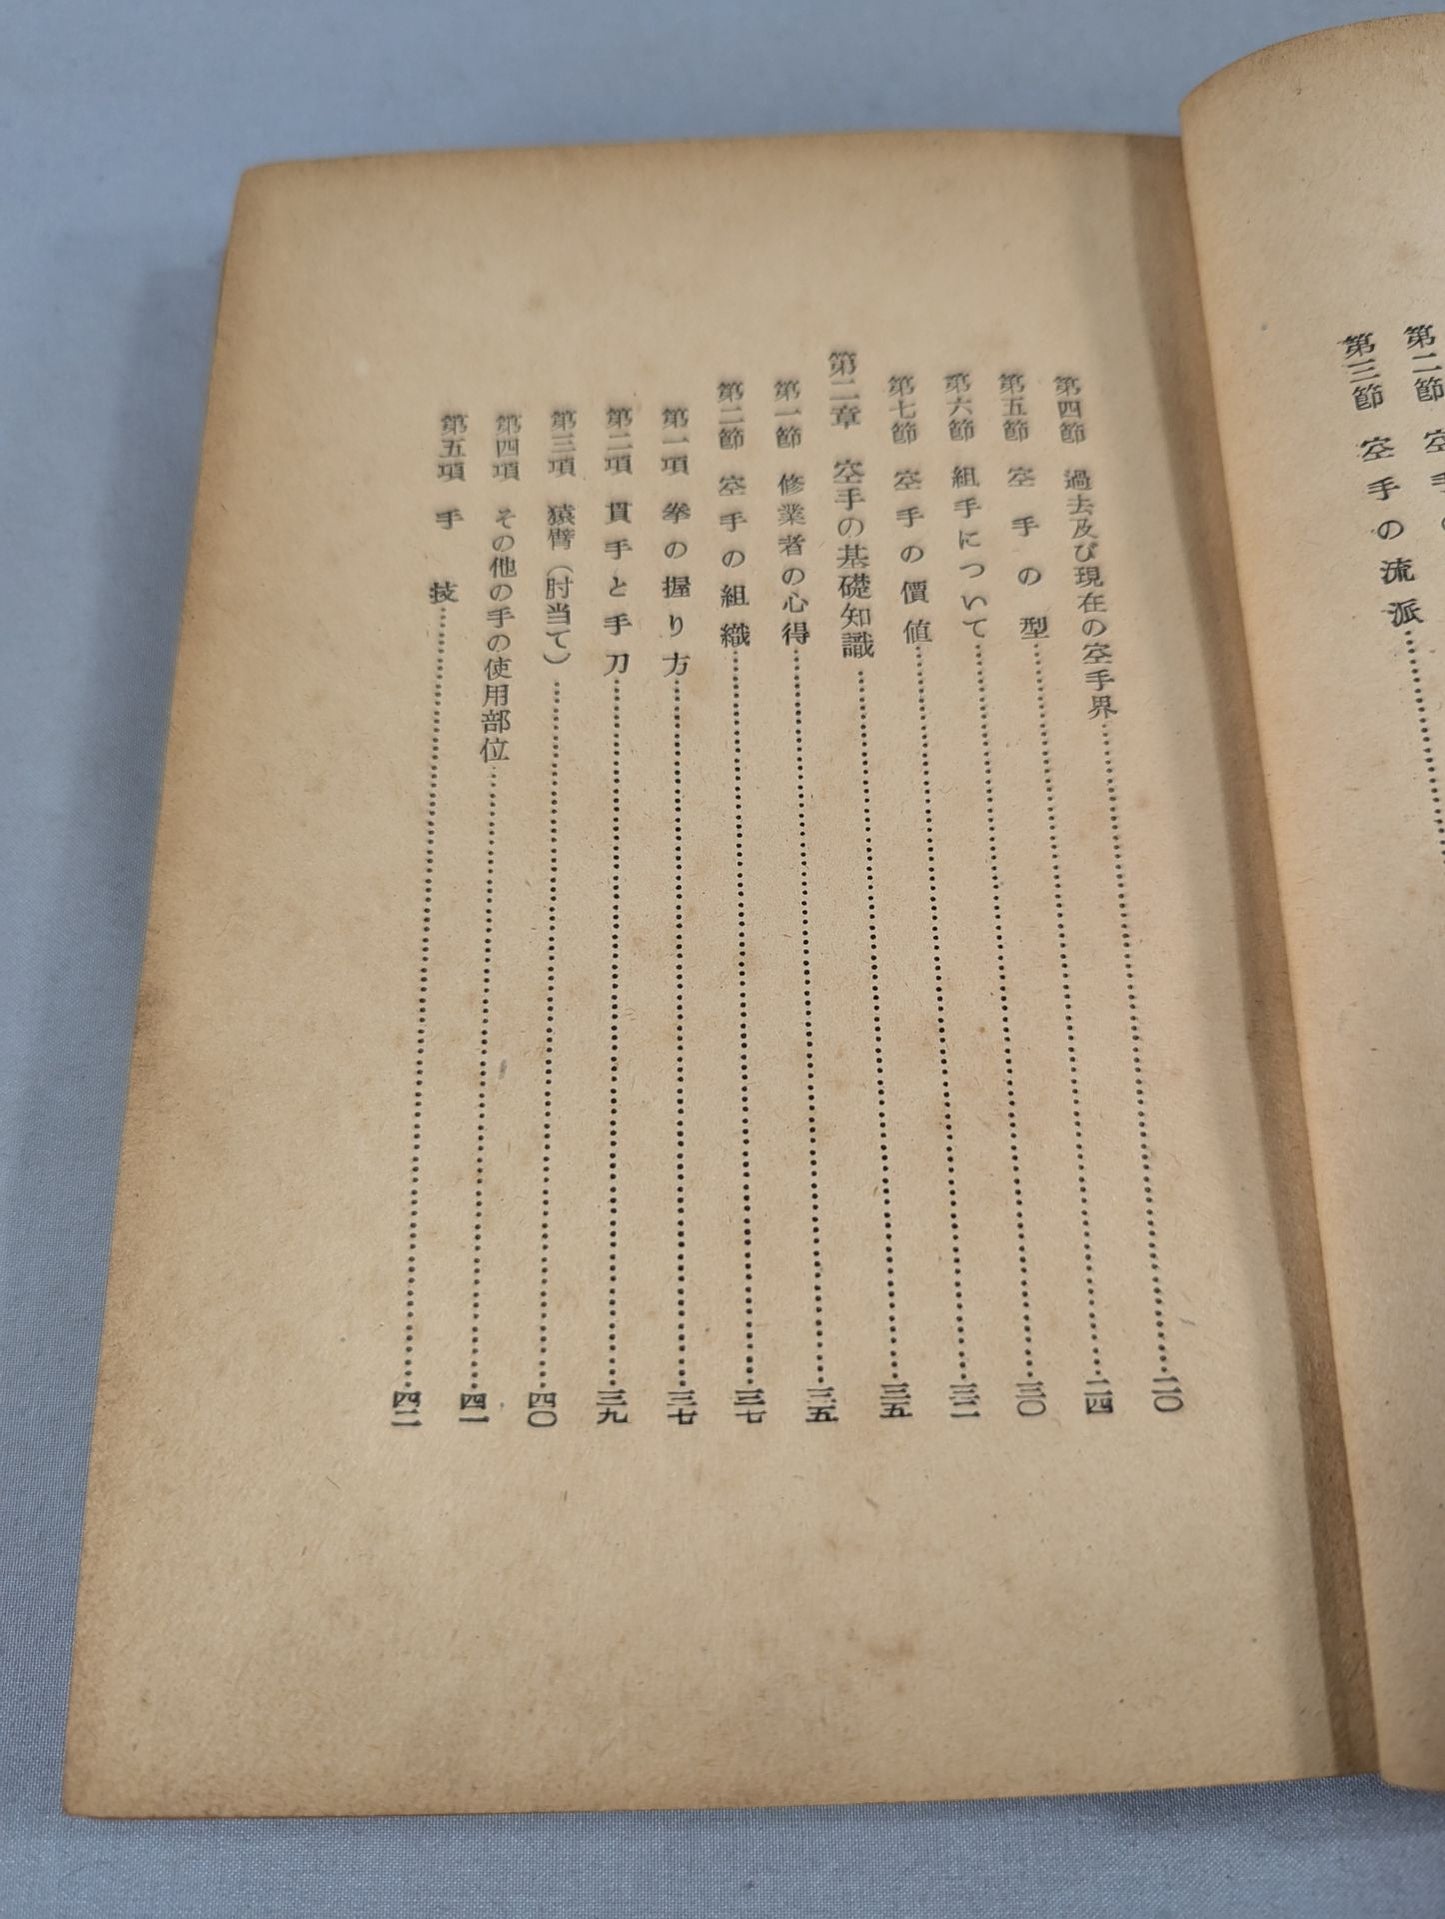 第二節 空手の
第三節 空手の流派……
第四節 過去及び現在の空手界……二〇
第五節 空手の型……二四
第六節 組手について……三〇
第七節 空手の價値……三二
第二章 空手の基礎知識……三五
第一節 修業者の心得……三五
第二節 空手の組織……三七
第一項 拳の握り方……三七
第二項 貫手と手刀……三九
第三項 猿臂(肘当て)……四〇
第四項 その他の手の使用部位……四一
第五項 手技……四二